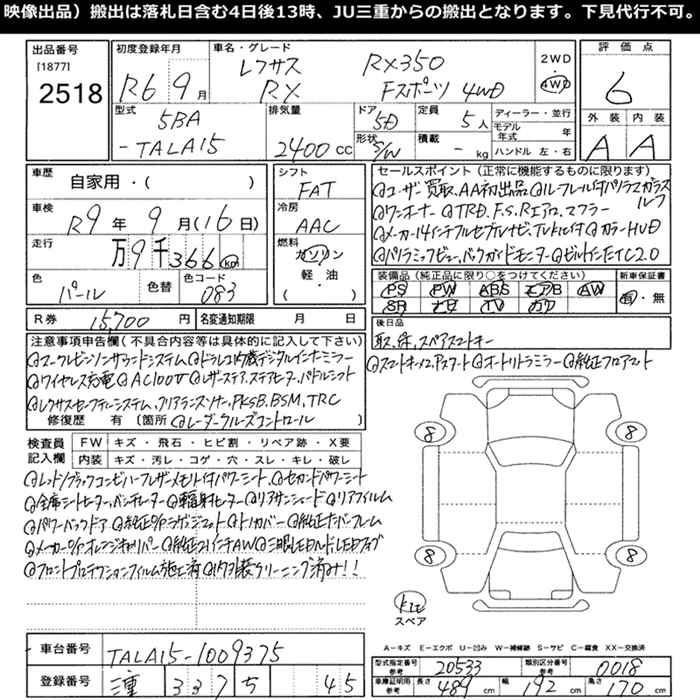 映像出品）搬出は落札日含む4日後13時、JU三重からの搬出となります。下見代行不可。
出品番号 [1877] 2518
初度登録年月 R6 9月
車名・グレード レクサス RX350
RX Fスポーツ 4WD
2WD 4WD
評価点 6
外装 内装
A A
型式 5BA-TALA15
排気量 2400cc
ドア 5D
形状 S/W
定員 5人
積載 - kg
ディーラー・並行
モデル年式 年
ハンドル 左・右
車歴 自家用・( )
車検 R9年9月(16日)
走行 万9千366km
色 パール
色替
色コード 083
シフト FAT
冷房 AAC
燃料 ガソリン
軽・油
( )
R券 15,700円
名変通知期限 月 日
セールスポイント(正常に機能するものに限ります)
@ユーザー買取、AA初出品@ルーフレール付パノラマガラスルーフ
@ワンオーナー @TRD.F.S.Rエアロ、マフラー
@メーカー14インチフルセグナビ、TVキット付@カラーHUD
@パノラミックビュー、バックガイドモニター@ビルトインETC2.0
装備品(純正品に限り○をつけてください)
PS PW ABS エアB AW
SR ナビ TV カワ
新車保証書
有・無
後日品
取、保、スペアスマートキー
注意事項申告欄(不具合内容等は具体的に記入して下さい)
@ドラレコ内蔵デジタルインナーミラー
@ワイヤレス充電@AC100V@レザーステア、ステアヒーター、パドルシフト
@レクサスセーフティーシステム、クリアランスソナー、PKSB.BSM.TRC
修復歴 有 (箇所 @レーダークルーズコントロール )
@スマートキー×2、Pスタート@オートリトラミラー@純正フロアマット
検査員記入欄
FW キズ・飛石・ヒビ割・リペア跡・X要
内装 キズ・汚レ・コゲ・穴・スレ・キレ・破レ
@レッド/ブラックコンビハーフレザーメモリ付パワーシート @セカンドパワーシート
@全席シートヒーター、ベンチレーター@輻射ヒーター@リアサンシェード@リアフィルム
@パワーバックドア @トノカバー @純正ナンバーフレーム
@メーカーO/Pオレンジキャリパー@純正21インチAW@三眼LEDヘッド、LEDフォグ
@フロントプロテクションフィルム施工済@内外装クリーニング済み!!
8 8
8 8
スペア
A－キズ E－エクボ U－凹み W－補修跡 S－サビ C－腐食 XX－交換済
車台番号 TALA15-1009375
登録番号 三重 337 ち 45
型式指定番号 参考 20533
類別区分番号 参考 0018
車庫証明用 参考 長さ 489cm 幅 192cm 高さ 170cm